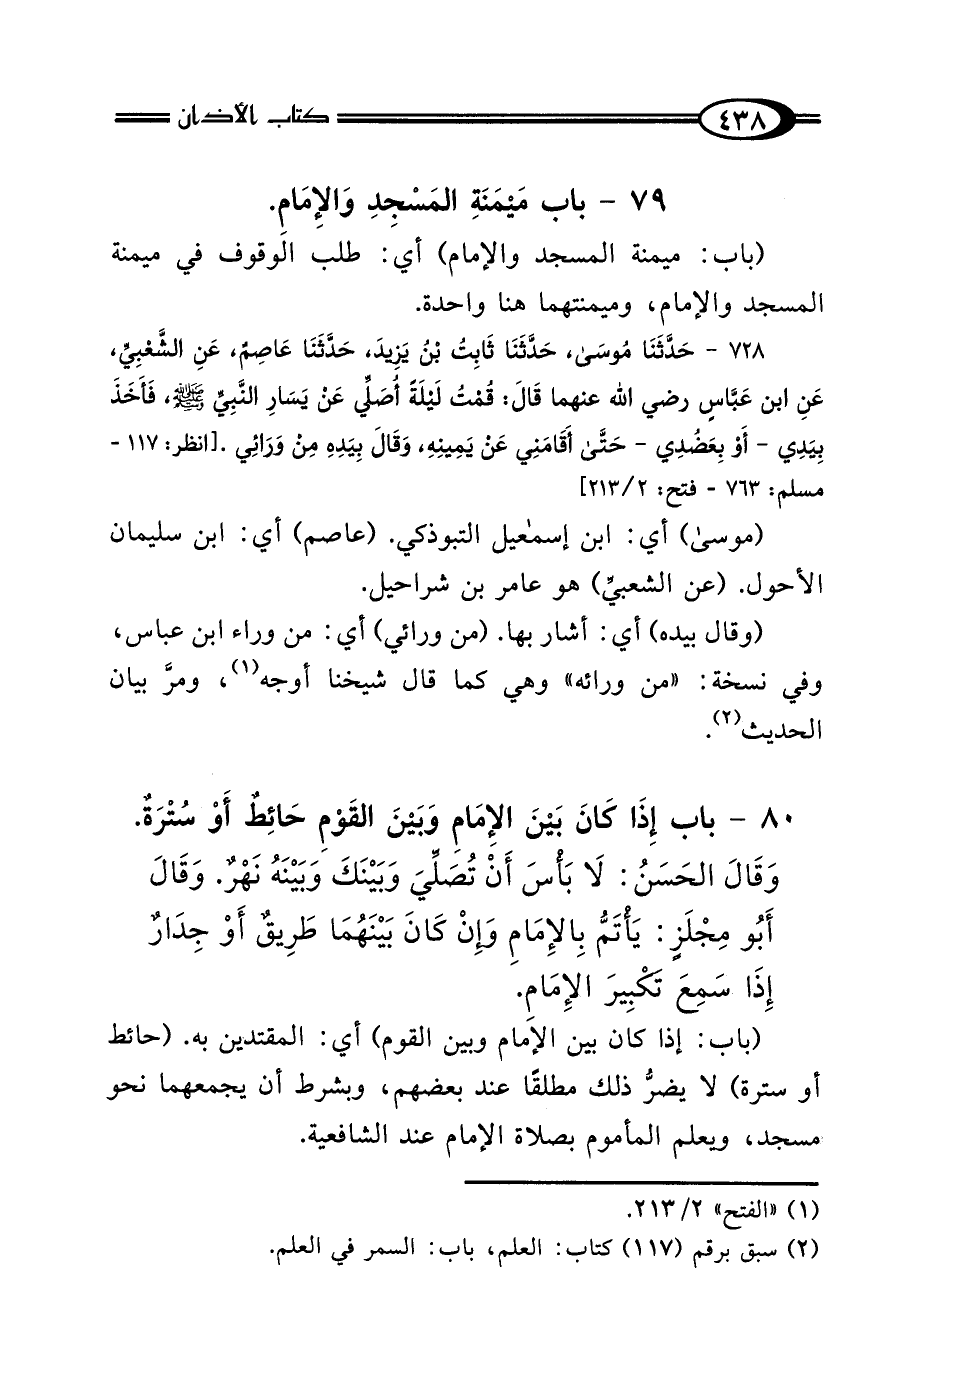 ٤٣٨ كتاب الأذان
٧٩ - باب مَيْمَنَةِ المَسْجِدِ وَالإِمَامِ.
(باب: ميمنة المسجد والإمام) أي: طلب الوقوف في ميمنة
المسجد والإمام، وميمنتهما هنا واحدة.
٧٢٨ - حَدَّثَنَا مُوسَىٰ، حَدَّثَنَا ثَابِتُ بْنُ يَزِيدَ، حَدَّثَنَا عَاصِمٌ، عَنِ الشَّعْبِيِّ،
عَنِ ابن عَبَّاسٍ رضي الله عنهما قَالَ: قُمْتُ لَيْلَةً أُصَلِّي عَنْ يَسَارِ النَّبِيِّ ﷺ، فَأَخَذَ
بِيَدِي - أَوْ بِعَضُدِي - حَتَّىٰ أَقَامَنِي عَنْ يَمِينِهِ، وَقَالَ بِيَدِهِ مِنْ وَرَائِي .[انظر: ١١٧ -
مسلم: ٧٦٣ - فتح: ٢/ ٢١٣]
(موسىٰ) أي: ابن إسمٰعيل التبوذكي. (عاصم) أي: ابن سليمان
الأحول. (عن الشعبيِّ) هو عامر بن شراحيل.
(وقال بيده) أي: أشار بها. (من ورائي) أي: من وراء ابن عباس،
وفي نسخة: «من ورائه» وهي كما قال شيخنا أوجه(١)، ومرَّ بيان
الحديث(٢).
٨٠ - باب إِذَا كَانَ بَيْنَ الإِمَامِ وَبَيْنَ القَوْمِ حَائِطٌ أَوْ سُتْرَةٌ.
وَقَالَ الحَسَنُ: لَا بَأْسَ أَنْ تُصَلِّيَ وَبَيْنَكَ وَبَيْنَهُ نَهْرٌ. وَقَالَ
أَبُو مِجْلَزٍ: يَأْتَمُّ بِالإِمَامِ وَإِنْ كَانَ بَيْنَهُمَا طَرِيقٌ أَوْ جِدَارٌ
إِذَا سَمِعَ تَكْبِيرَ الإِمَامِ.
(باب: إذا كان بين الإمام وبين القوم) أي: المقتدين به. (حائط
أو سترة) لا يضرُّ ذلك مطلقًا عند بعضهم، وبشرط أن يجمعهما نحو
مسجد، ويعلم المأموم بصلاة الإمام عند الشافعية.
(١) «الفتح» ٢/ ٢١٣.
(٢) سبق برقم (١١٧) كتاب: العلم، باب: السمر في العلم.